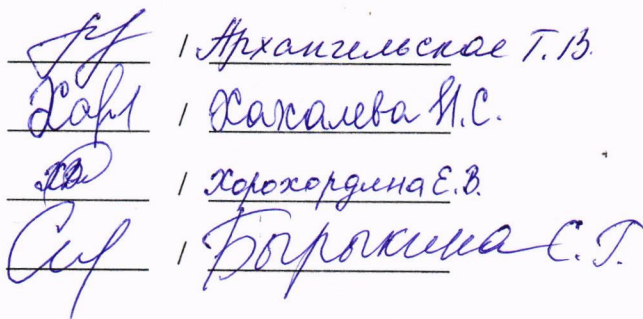 / Архангельская Т.В.
/ Хахалева Н.С.
/ Хорохордина Е.В.
/ Бырыкина С.Г.